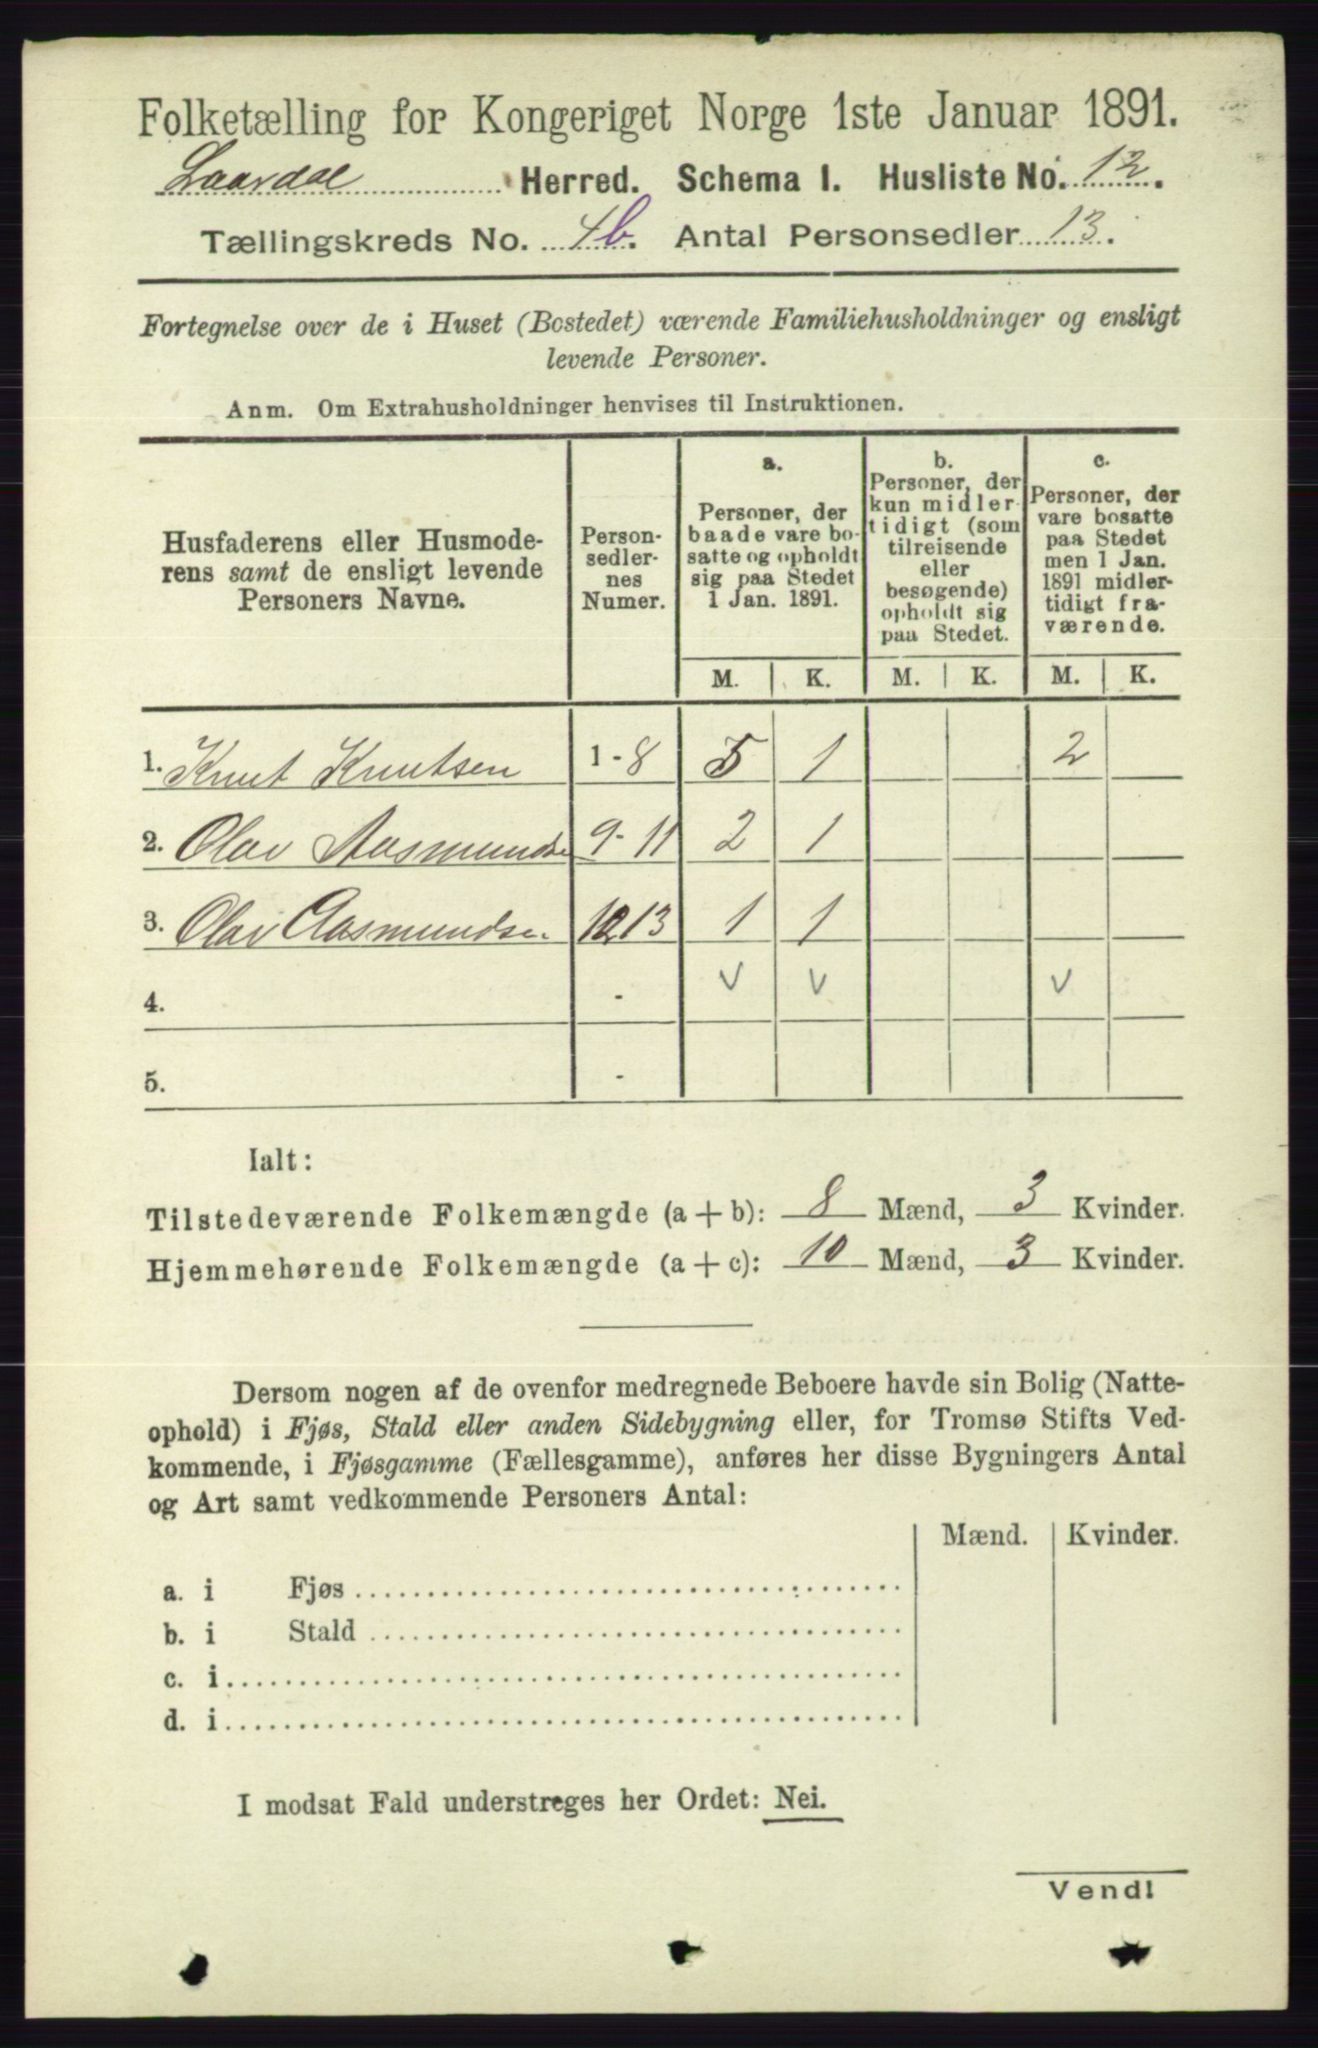 Folketælling for Kongeriget Norge 1ste Januar 1891.
Laardal Herred. Schema 1. Husliste No. 12.
Tællingskreds No. 4b. Antal Personsedler 13.
Fortegnelse over de i Huset (Bostedet) værende Familiehusholdninger og ensligt
levende Personer.
Anm. Om Extrahusholdninger henvises til Instruktionen.
Husfaderens eller Husmode-
rens samt de ensligt levende
Personers Navne.
Person-
sedler-
nes
Numer.
a.
Personer, der
baade vare bo-
satte og opholdt
sig paa Stedet
1 Jan. 1891.
b.
Personer, der
kun midler-
tidigt (som
tilreisende
eller
besøgende)
opholdt sig
paa Stedet.
c.
Personer, der
vare bosatte
paa Stedet
men 1 Jan.
1891 midler-
tidigt fra-
værende.
M. K. M. K. M. K.
1. Knut Knutsen 1-8 5 1 2
2. Olav Aasmundsen 9-11 2 1
3. Olav Aasmundsen 12 13 1 1
4. - v v v
5. -
Ialt:
Tilstedeværende Folkemængde (a + b): 8 Mænd, 3 Kvinder.
Hjemmehørende Folkemængde (a + c): 10 Mænd, 3 Kvinder.
Dersom nogen af de ovenfor medregnede Beboere havde sin Bolig (Natte-
ophold) i Fjøs, Stald eller anden Sidebygning eller, for Tromsø Stifts Ved-
kommende, i Fjøsgamme (Fællesgamme), anføres her disse Bygningers Antal
og Art samt vedkommende Personers Antal:
Mænd. Kvinder.
a. i Fjøs
b. i Stald
c. i
d. i
I modsat Fald understreges her Ordet: Nei.
Vend!